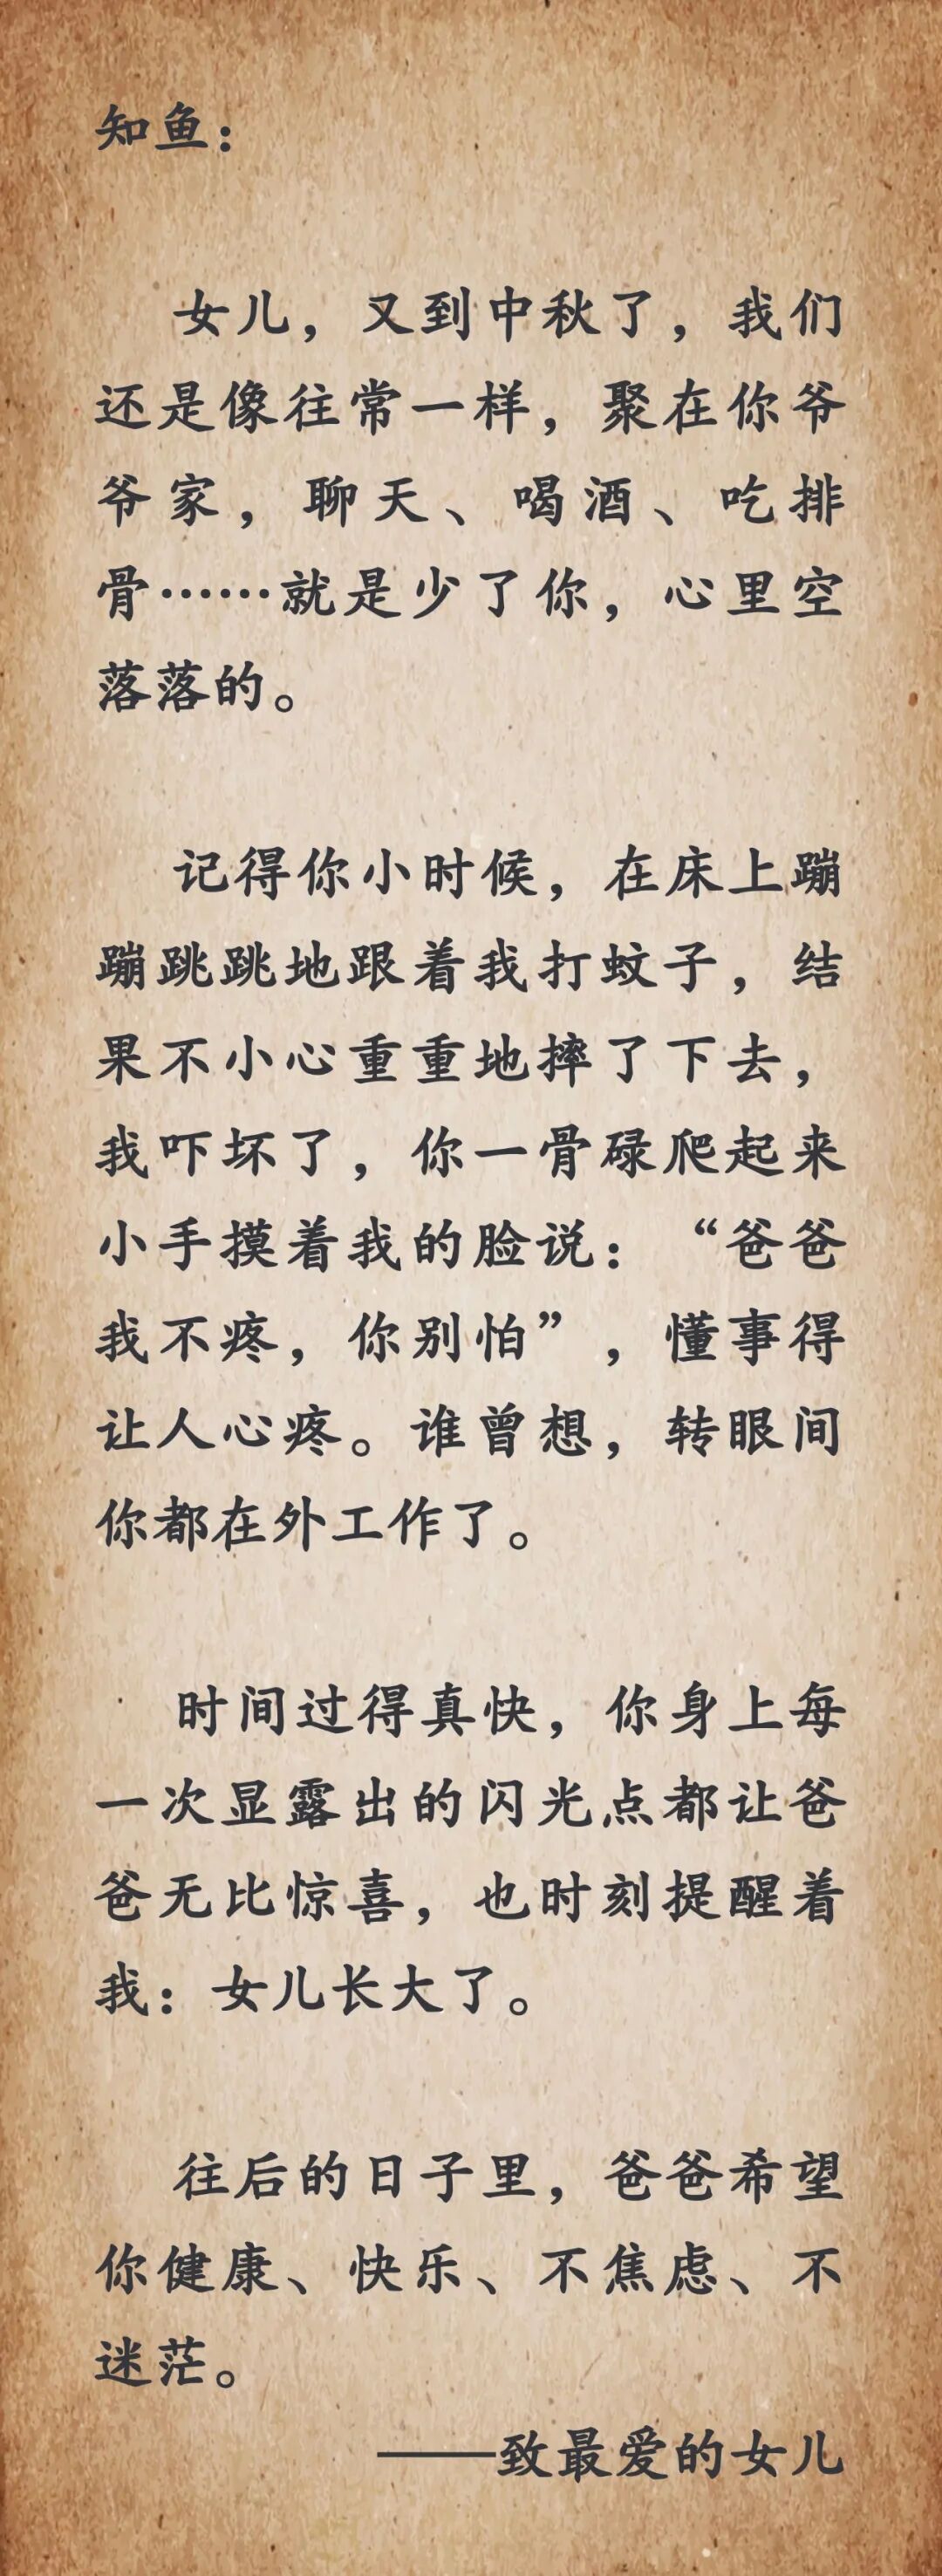 知鱼：
女儿，又到中秋了，我们
还是像往常一样，聚在你爷
爷家，聊天、喝酒、吃排
骨……就是少了你，心里空
落落的。
记得你小时候，在床上蹦
蹦跳跳地跟着我打蚊子，结
果不小心重重地摔了下去，
我吓坏了，你一骨碌爬起来
小手摸着我的脸说：“爸爸
我不疼，你别怕”，懂事得
让人心疼。谁曾想，转眼间
你都在外工作了。
时间过得真快，你身上每
一次显露出的闪光点都让爸
爸无比惊喜，也时刻提醒着
我：女儿长大了。
往后的日子里，爸爸希望
你健康、快乐、不焦虑、不
迷茫。
——致最爱的女儿